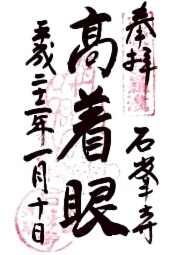 奉拝
石峯寺
高着眼
平成二十二年一月十日